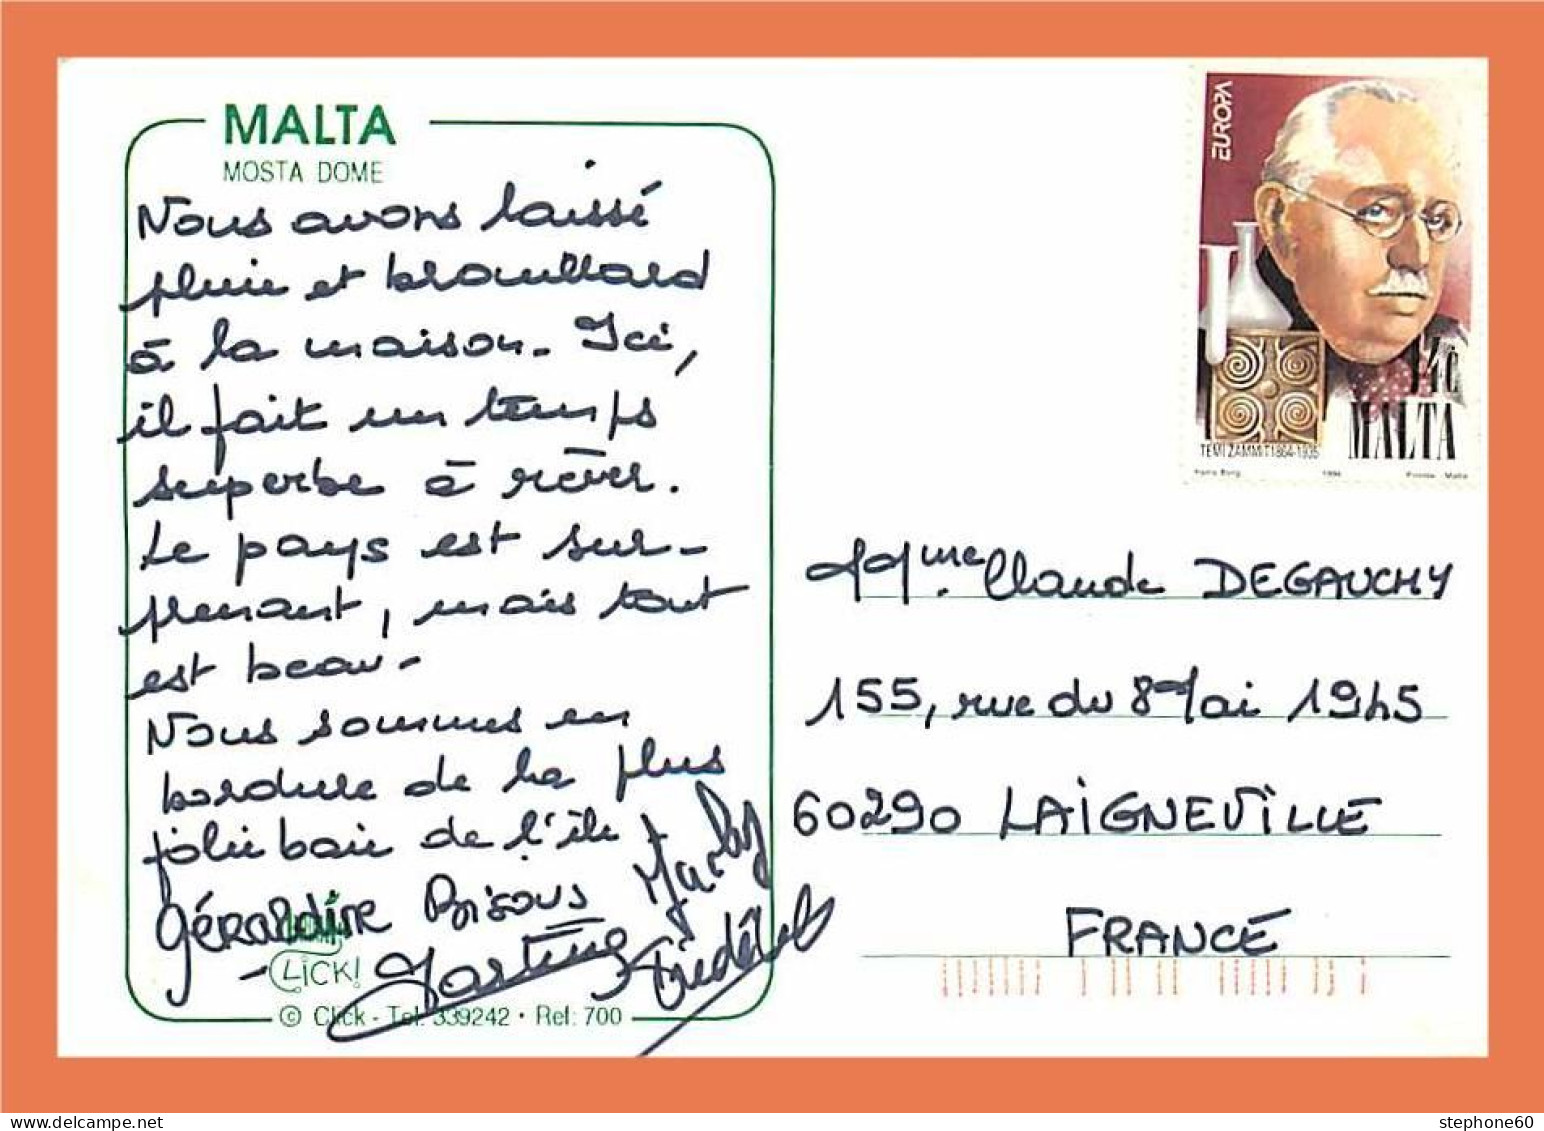 MALTA
MOSTA DOME
Nous avons laissé
pluie et brouillard
à la maison. Ici,
il fait un temps
superbe à rêver.
Le pays est sur-
prenant, mais tout
est beau.
Nous sommes en
bordure de la plus
jolie baie de l'île
Géraldine Bisous
Martine
CLICK!
© Click - Tel: 339242 • Ref: 700
EUROPA
14c
MALTA
TEMI ZAMMIT 1864-1935
Harry Borg 1994 Printex - Malta
M. Mme Claude DEGAUCHY
155, rue du 8 Mai 1945
60290 LAIGNEVILLE
FRANCE
stephone60